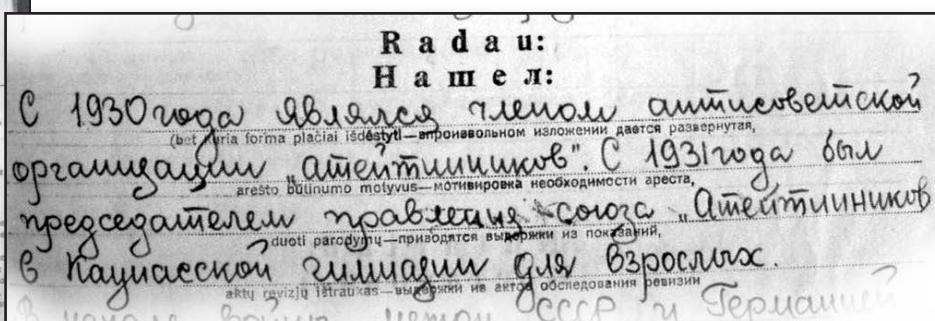 Radau:
Нашел:
С 1930 года являлся членом антисоветской
(bet kuria forma plačiai išdėstyti—впроизвольном изложении дается развернутая,
организации „атейтиников". С 1931 года был
arešto būtinumo motyvus—мотивировка необходимости ареста,
председателем правления союза „Атейтинников
duoti parodymų—приводятся выдержки из показаний,
в Каунасской гимназии для взрослых.
aktų revizjų ištraukas—выдержки из актов обследования ревизии
В начале войны между СССР и Германией